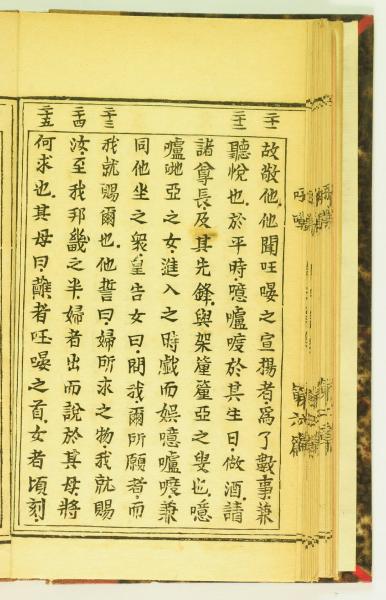 二十一
故敬他他聞㕵㬇之宣揚者為了數事兼
二十二
聽悅也於平時噫嚧㗋於其生日做酒請
諸尊長及其先鋒與架釐釐亞之叟也噫
嚧哋亞之女進入之時戲而娛噫嚧㗋兼
二十三
同他坐之衆皇告女曰問我爾所願者而
我就賜爾也他誓曰婦所求之物我就賜
二十四
汝至我邦畿之半婦者出而說於其母將
二十五
何求也其母曰蘸者㕵㬇之首女者頃刻